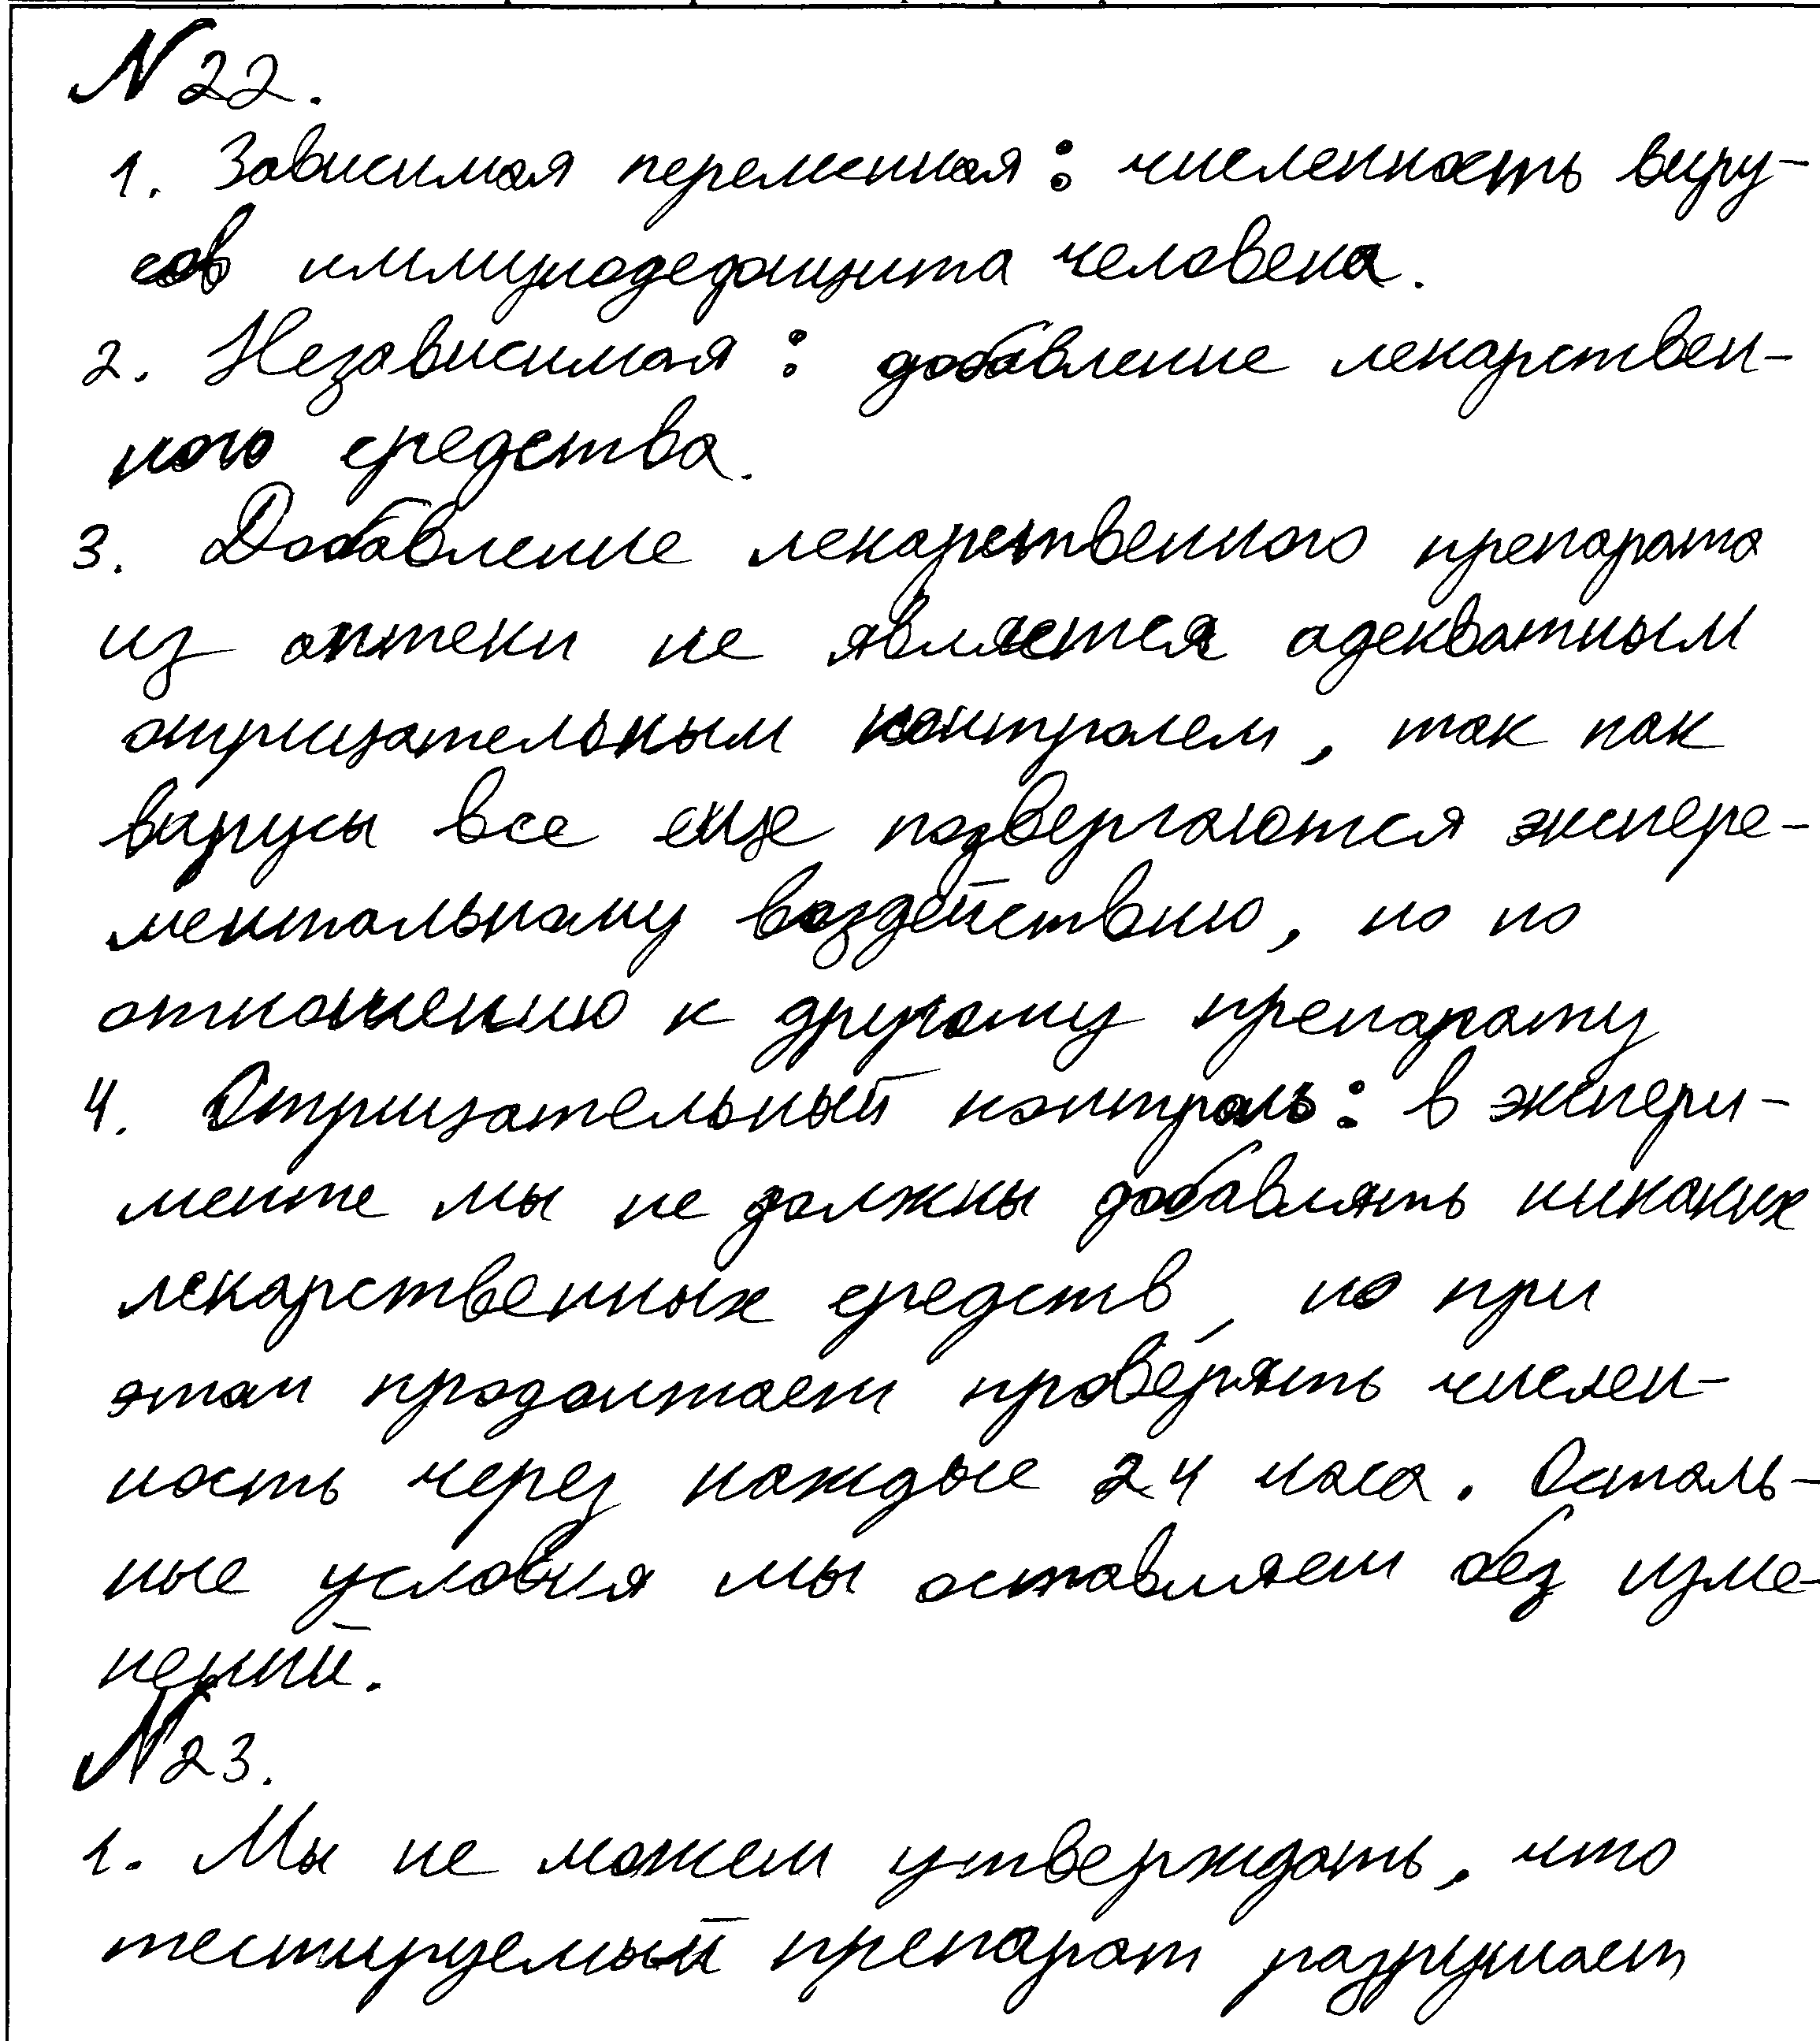 N 22.
1. Зависимая переменная: численность виру-
сов иммунодефицита человека.
2. Независимая: добавление лекарствен-
ного средства.
3. Добавление лекарственного препарата
из аптеки не является адекватным
отрицательным контролем, так как
вирусы все еще подвергаются экспере-
ментальному воздействию, но по
отношению к другому препарату
4. Отрицательный контроль: в экспери-
менте мы не должны добавлять никаких
лекарственных средств, но при
этом продолжаем проверять числен-
ность через каждые 24 часа. Осталь-
ные условия мы оставляем без изме-
нений.
N 23.
1. Мы не можем утверждать, что
тестируемый препарат разрушает